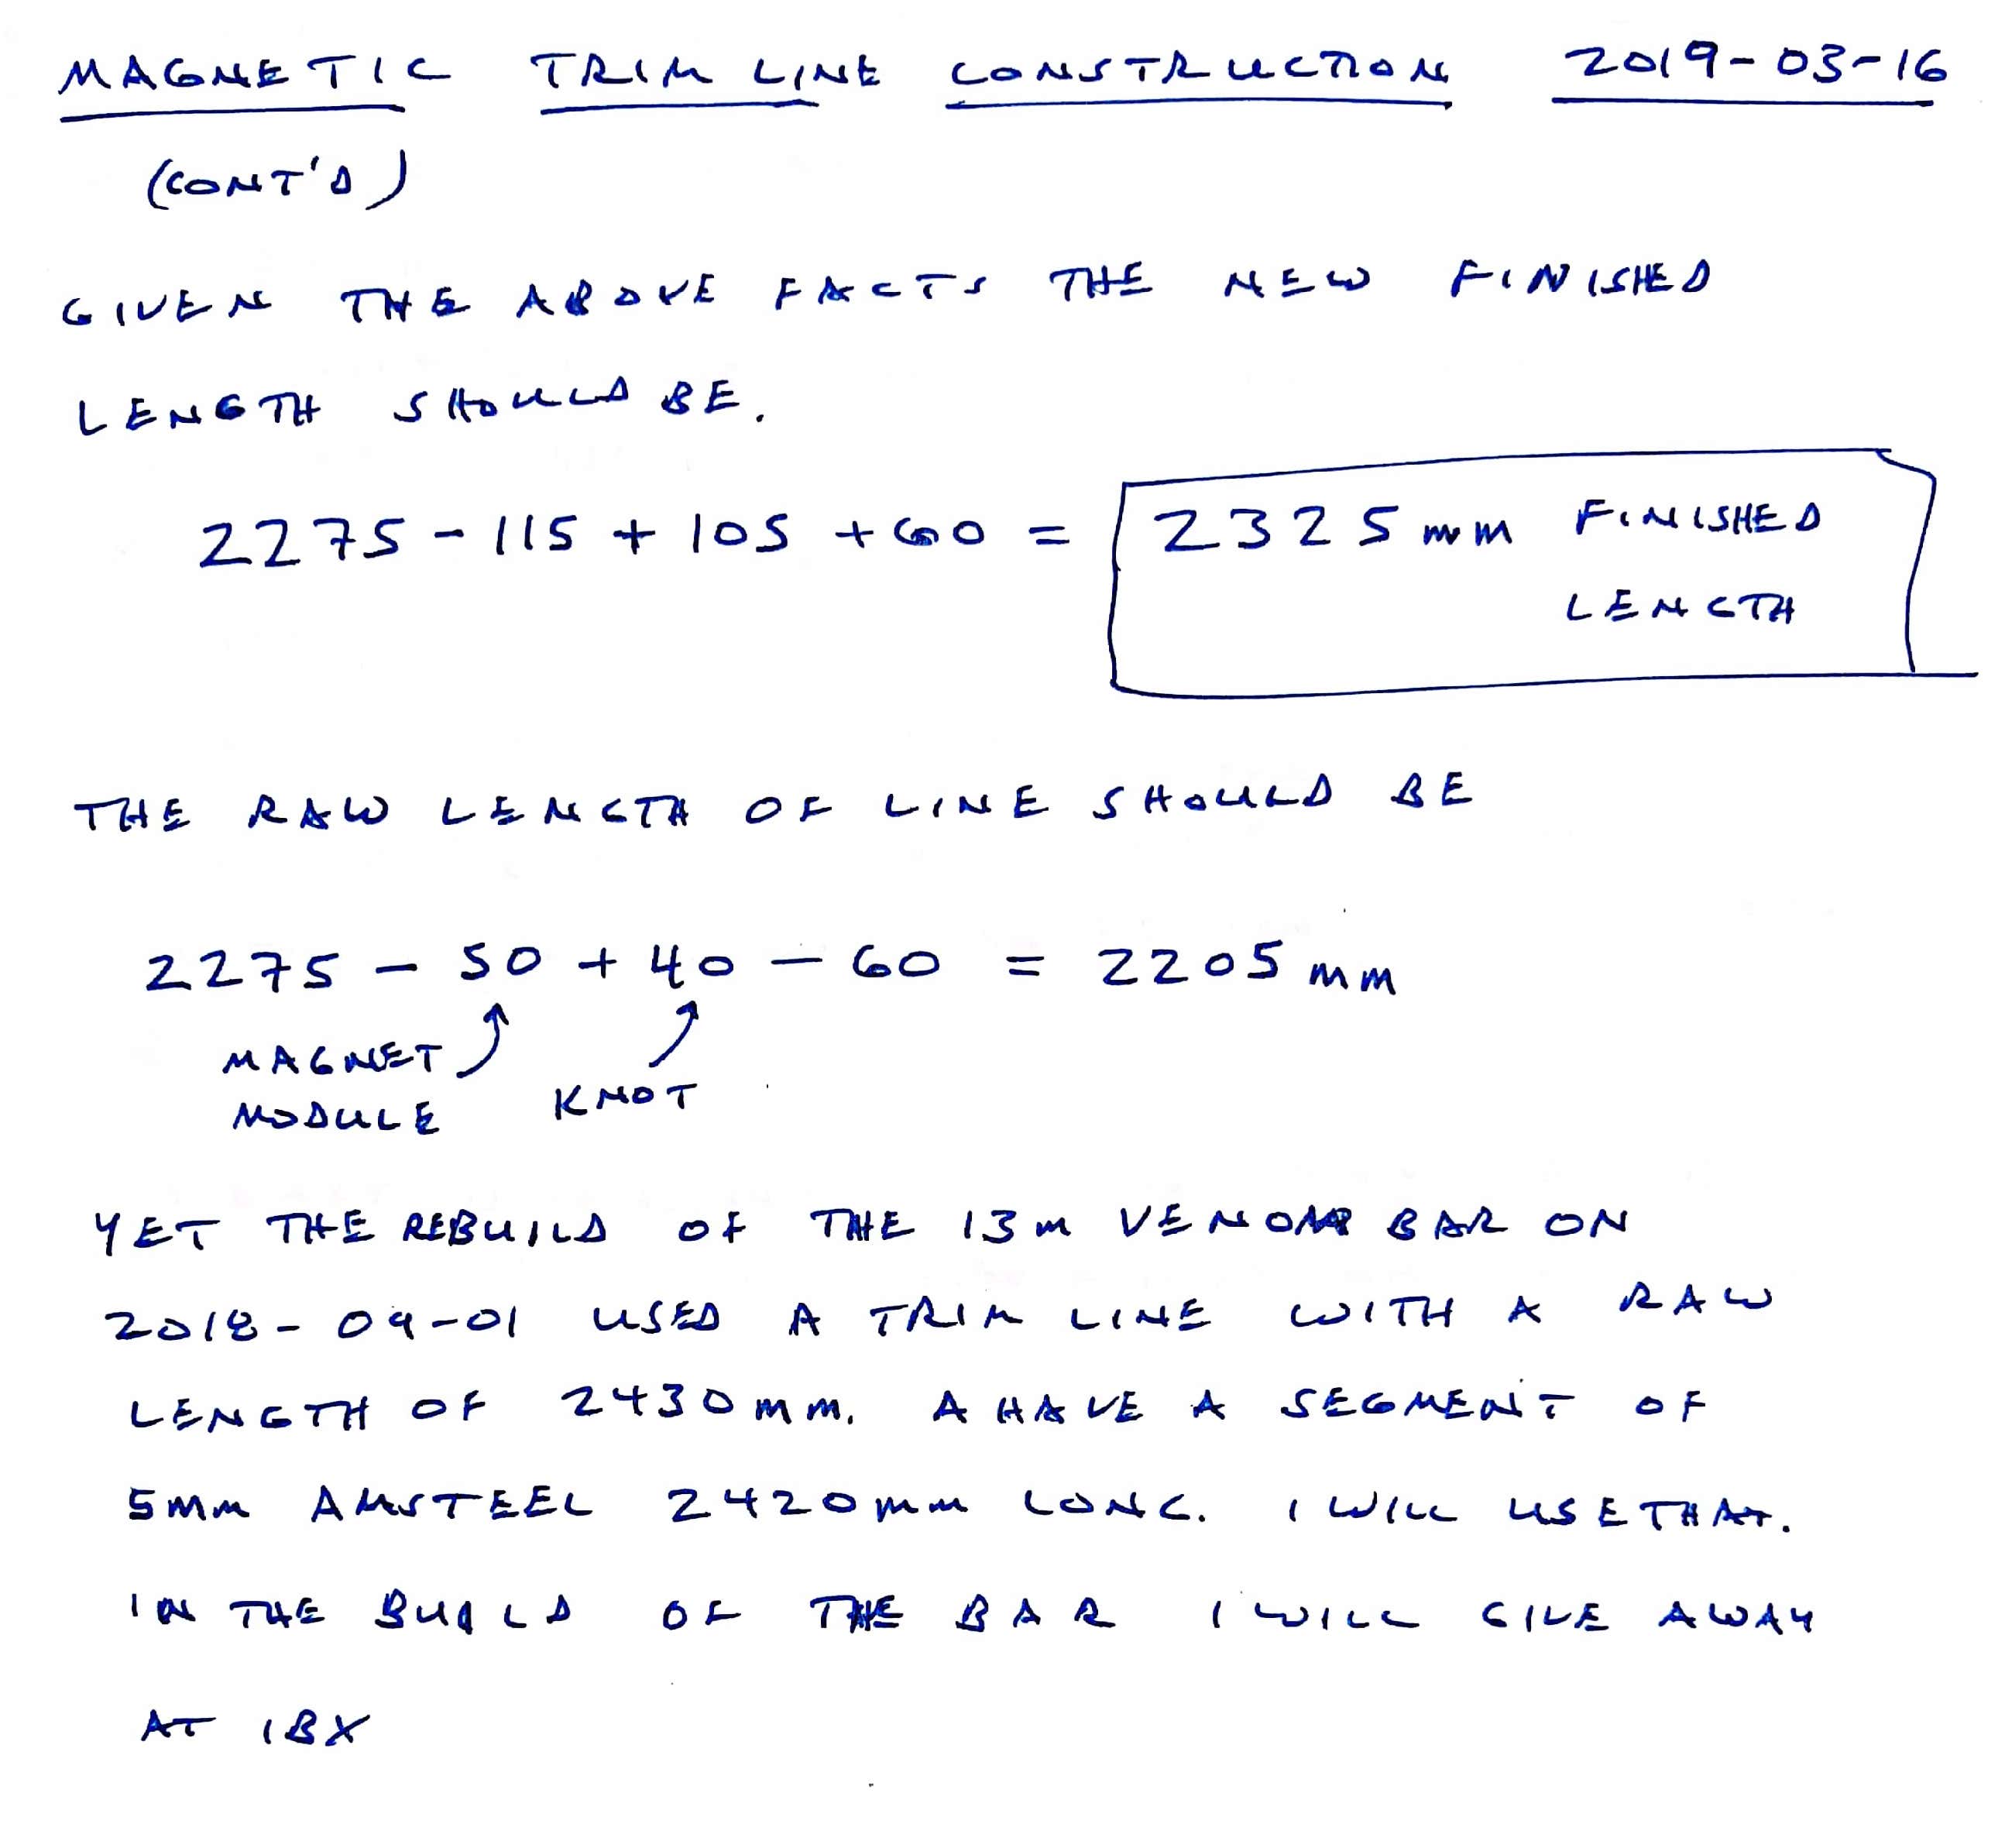 MAGNETIC TRIM LINE CONSTRUCTION 2019-03-16
(CONT'D)
GIVEN THE ABOVE FACTS THE NEW FINISHED
LENGTH SHOULD BE.
2275 - 115 + 105 + 60 = 2325 mm FINISHED
LENGTH
THE RAW LENGTH OF LINE SHOULD BE
2275 - 50 + 40 - 60 = 2205 mm
MAGNET
MODULE KNOT
YET THE REBUILD OF THE 13m VENOM BAR ON
2018-09-01 USED A TRIM LINE WITH A RAW
LENGTH OF 2430 mm. A HAVE A SEGMENT OF
5mm AMSTEEL 2420mm LONG. I WILL USE THAT.
IN THE BUILD OF THE BAR I WILL GIVE AWAY
AT IBX